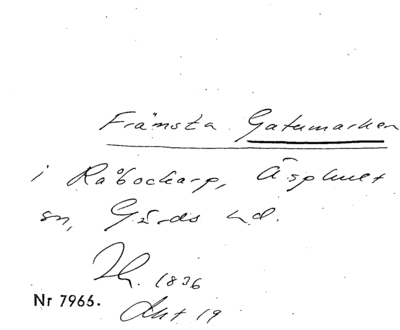 Främsta Gatumarken
i Råbockarp, Äsphult
sn, Gärds hd.
Lh. 1836
Akt 19
Nr 7966.